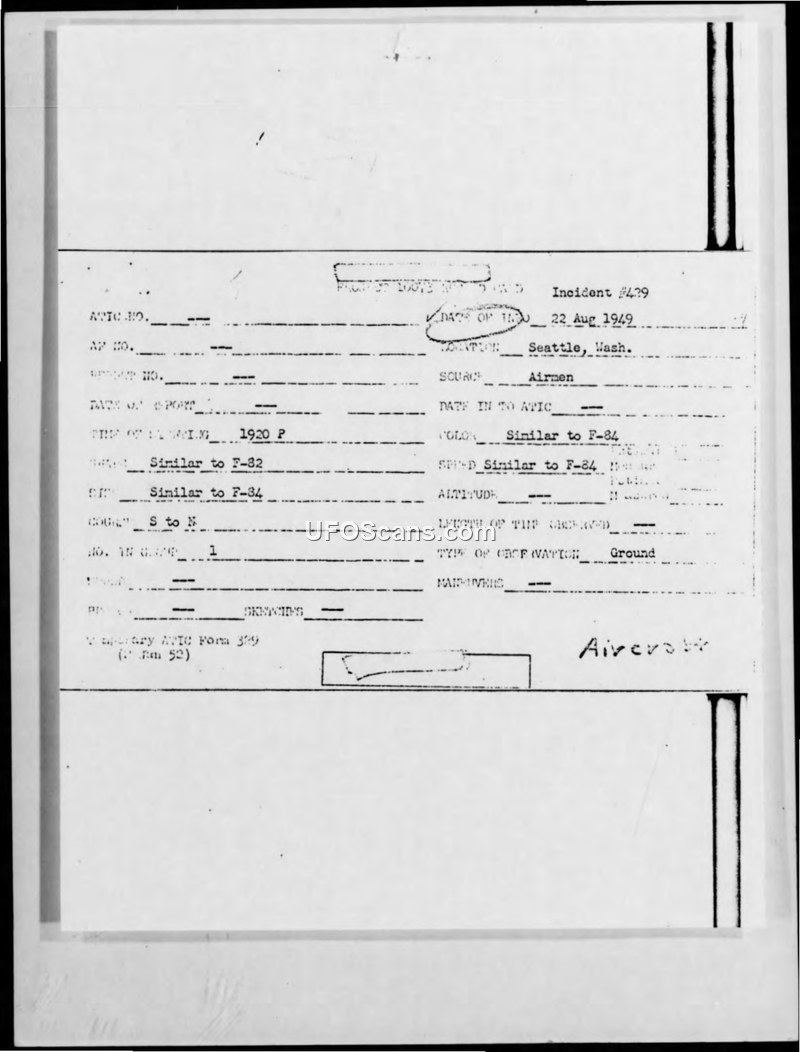 Incident #429
ATIC NO. --- DATE OF INFO 22 Aug 1949
AF NO. --- LOCATION Seattle, Wash.
REPORT NO. --- SOURCE Airmen
DATE OF REPORT --- DATE IN TO ATIC ---
TIME OF SIGHTING 1920 P COLOR Similar to F-84
SHAPE Similar to F-82 SPEED Similar to F-84
SIZE Similar to F-84 ALTITUDE ---
COURSE S to N LENGTH OF TIME OBSERVED ---
UFOScans.com
NO. IN GROUP 1 TYPE OF OBSERVATION Ground
--- MANEUVERS ---
--- SKETCHES ---
Temporary ATIC Form 329
52)
Aircraft